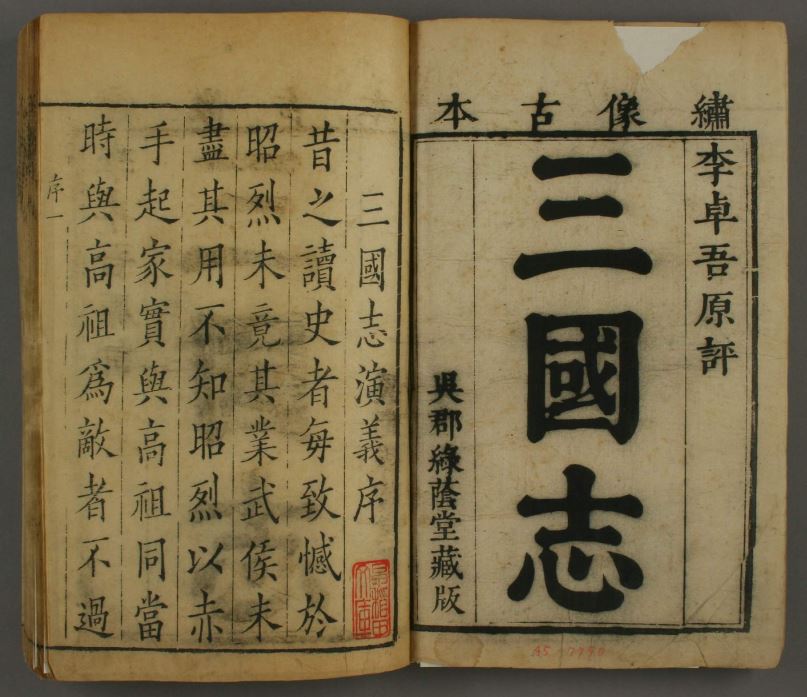 繡像古本
李卓吾原評
三國志
吳郡綠蔭堂藏版
三國志演義序
昔之讀史者每致憾於
昭烈未竟其業武侯未
盡其用不知昭烈以赤
手起家實與高祖同當
時與高祖為敵者不過
序一